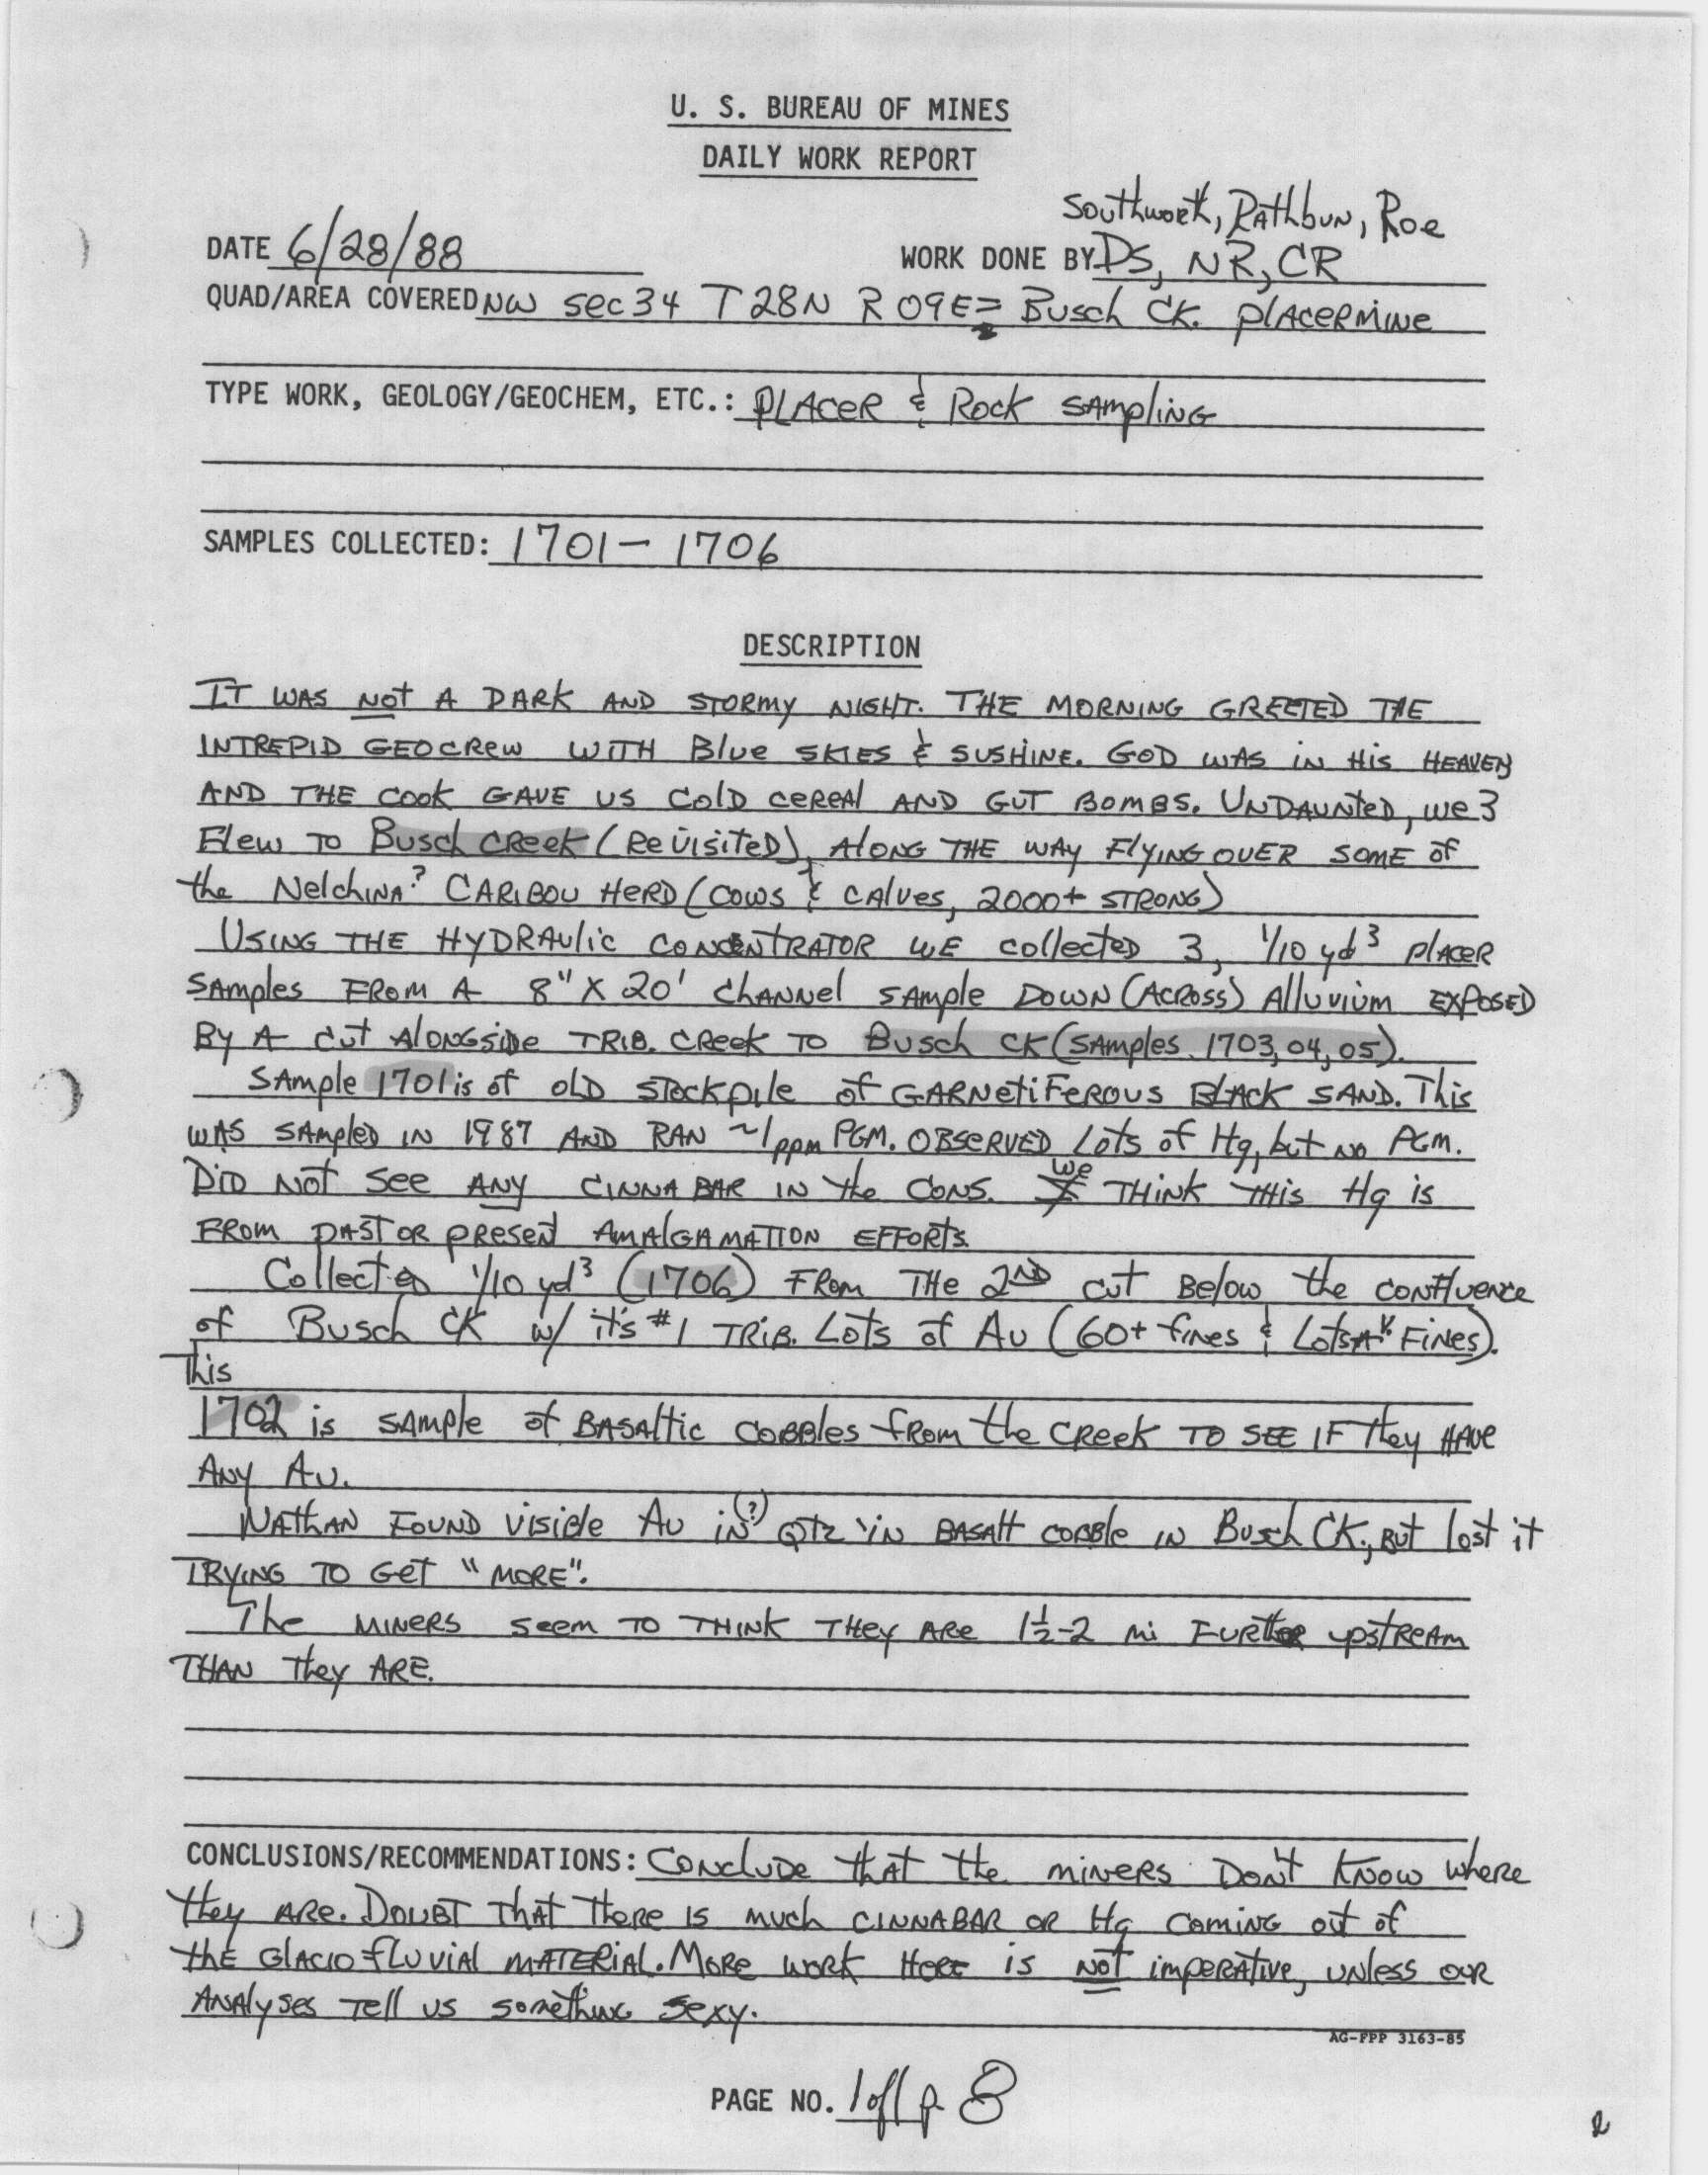 U. S. BUREAU OF MINES
DAILY WORK REPORT
Southworth, Rathbun, Roe
DATE 6/28/88 WORK DONE BY DS, NR, CR
QUAD/AREA COVERED NW Sec 34 T 28N R 09E = Busch CK. placer mine
TYPE WORK, GEOLOGY/GEOCHEM, ETC.: PLACER & Rock SAmpliNG
SAMPLES COLLECTED: 1701 - 1706
DESCRIPTION
IT WAS NOT A DARK AND STORMY NIGHT. THE MORNING GREETED THE
INTREPID GEOCREW WITH Blue SKIES & SUSHINE. GOD WAS in His HEAVEN
AND THE COOK GAVE US COLD CEREAL AND GUT BOMBS. UNDAUNTED, WE 3
Flew TO Busch CREEK (Revisited), AlONG THE WAY FlYING OVER SOME OF
the NelchiNA? CARIBOU HERD (COWS & CALVES, 2000+ STRONG)
USING THE HYDRAULIC CONCENTRATOR WE collected 3, 1/10 yd³ placer
SAMPLES FROM A 8" X 20' ChANNel SAMPLE DOWN (ACROSS) Alluvium EXPOSED
By A cut AlONGSIDE TRIB. CREEK TO Busch CK (SAmples 1703, 04, 05).
SAmple 1701 is of OLD Stockpile of GARNetiFEROUS BLACK SAND. This
WAS SAMPLED IN 1987 AND RAN ~1ppm PGM. OBSERVED Lots of Hg, but NO PGM.
DID NOT See ANY CINNABAR IN the CONS. we THINK THIS Hg is
FROM PAST OR PRESENT AMALGAMATION EFFORTS.
Collected 1/10 yd³ (1706) From The 2ND cut Below the confluence
of Busch CK w/ it's #1 TRIB. Lots of Au (60+ fines & Lots A V FINES).
This
1702 is SAMPLE of BASALTIC COBBLES from the CREEK TO SEE IF They HAVE
ANY Au.
NATHAN FOUND VISIBLE Au in (?) Qtz in BASALT COBBLE IN Busch CK., BUT lost it
TRYING TO GET "MORE".
The MINERS seem TO THINK THEY ARE 1½-2 mi FURTHER UPSTREAM
THAN They ARE.
CONCLUSIONS/RECOMMENDATIONS: Conclude that the miners Don't Know where
they ARE. DOUBT THAT There is much CINNABAR OR Hg coming out of
the GLACIOFLUVIAL MATERIAL. MORE WORK HERE is NOT imperative, unless our
ANALYSES Tell us something sexy.
AG-FPP 3163-85
PAGE NO. 1 of 1 p 8